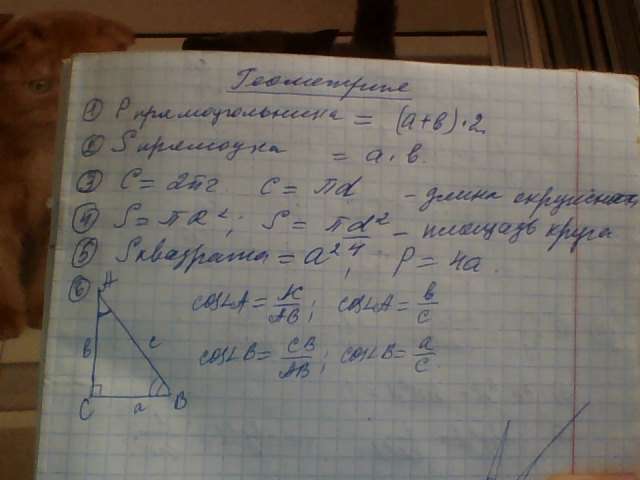 Геометрия
① P прямоугольника = (a+b)·2
② S прямоуг-ка = a·b.
③ C = 2πr. C = πd - длина окружности
④ S = πR²; S = πd² - площадь круга
④
⑤ S квадрата = a²; P = 4a.
⑥ A
cos∠A = AC/AB; cos∠A = b/c
b c
cos∠B = CB/AB; cos∠B = a/c.
C a B